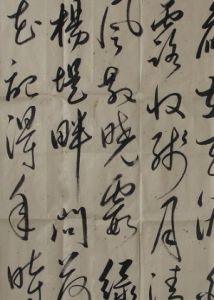 露收殘月清
風散曉霞綠
楊堤畔問荷
花記得年時